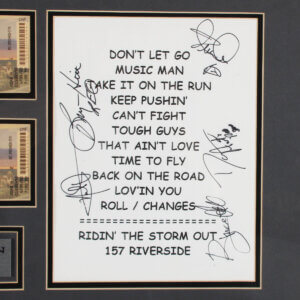 DON'T LET GO
MUSIC MAN
AKE IT ON THE RUN
KEEP PUSHIN'
CAN'T FIGHT
TOUGH GUYS
THAT AIN'T LOVE
TIME TO FLY
BACK ON THE ROAD
LOV'IN YOU
ROLL / CHANGES
====================
RIDIN' THE STORM OUT
157 RIVERSIDE